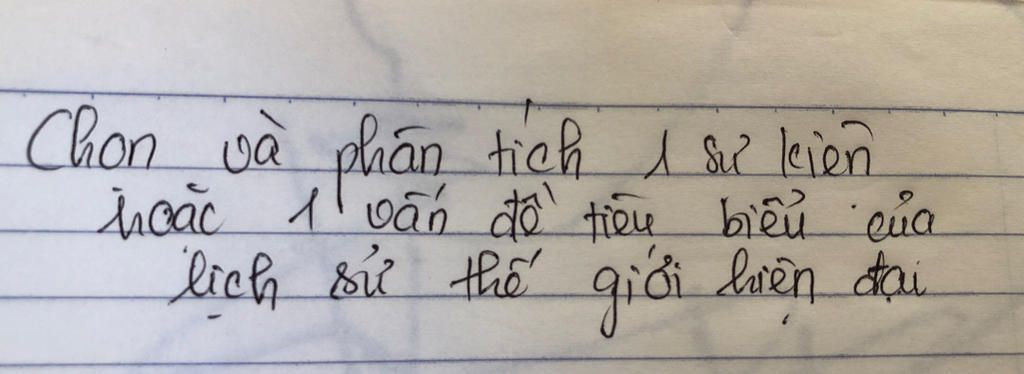 Chon và phân tích 1 sự kiện
hoặc 1 vấn đề tiêu biểu của
lịch sử thế giới hiện đại